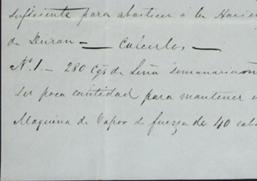 suficiente para abastecer á la Hacien
de Duran — Calcerlo, —
Nº. 1 – 280 Cgs de Leña semanarios
ser poca cantidad para mantener
Maquina de Vapor de fuerza de 40 caba